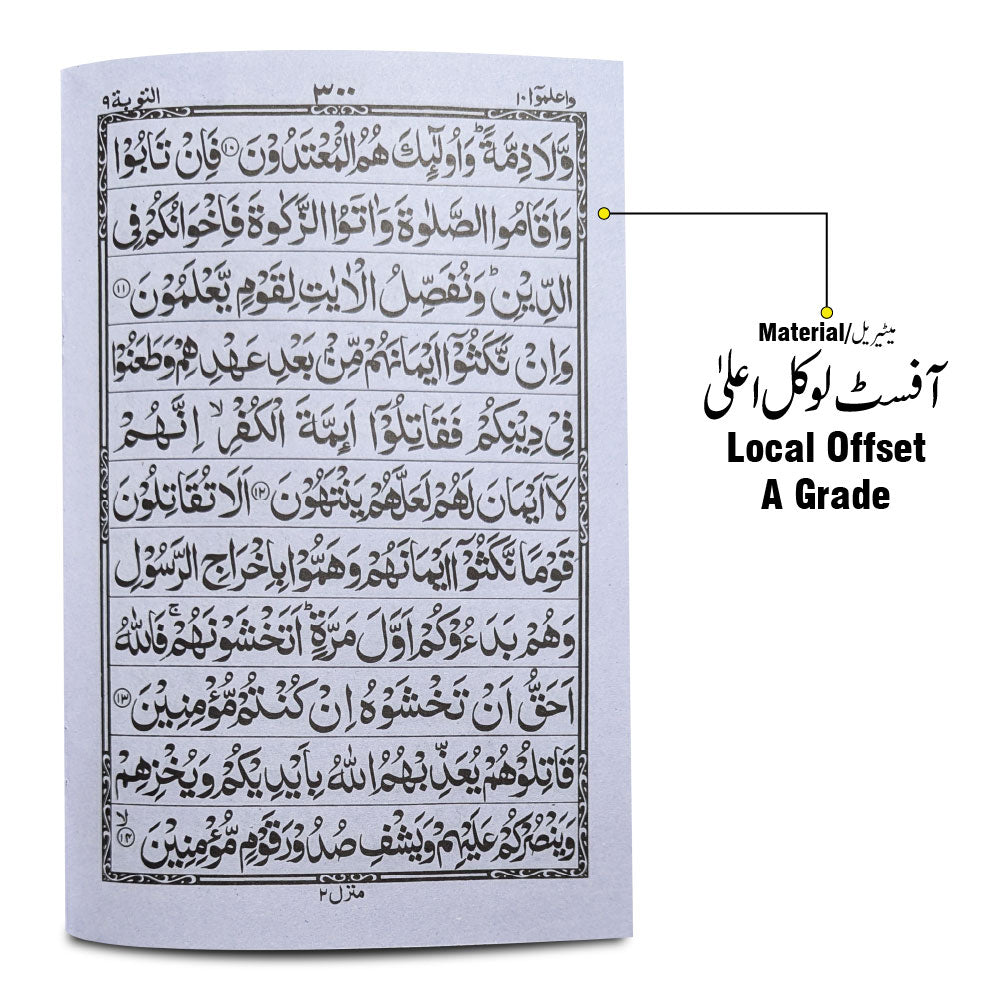 واعلموا ١٠ ٣٠٠ التوبة ٩
وَّلَا ذِمَّةً ؕ وَاُولٰٓئِكَ هُمُ الْمُعْتَدُوْنَ ۝١٠ فَاِنْ تَابُوْا
وَاَقَامُوا الصَّلٰوةَ وَاٰتَوُا الزَّكٰوةَ فَاِخْوَانُكُمْ فِى
الدِّيْنِ ؕ وَنُفَصِّلُ الْاٰيٰتِ لِقَوْمٍ يَّعْلَمُوْنَ ۝١١
وَاِنْ نَّكَثُوْۤا اَيْمَانَهُمْ مِّنْۢ بَعْدِ عَهْدِهِمْ وَطَعَنُوْا
فِىْ دِيْنِكُمْ فَقَاتِلُوْۤا اَىِٕمَّةَ الْكُفْرِ ۙ اِنَّهُمْ
لَاۤ اَيْمَانَ لَهُمْ لَعَلَّهُمْ يَنْتَهُوْنَ ۝١٢ اَلَا تُقَاتِلُوْنَ
قَوْمًا نَّكَثُوْۤا اَيْمَانَهُمْ وَهَمُّوْا بِاِخْرَاجِ الرَّسُوْلِ
وَهُمْ بَدَءُوْكُمْ اَوَّلَ مَرَّةٍ ؕ اَتَخْشَوْنَهُمْ ۚ فَاللّٰهُ
اَحَقُّ اَنْ تَخْشَوْهُ اِنْ كُنْتُمْ مُّؤْمِنِيْنَ ۝١٣
قَاتِلُوْهُمْ يُعَذِّبْهُمُ اللّٰهُ بِاَيْدِيْكُمْ وَيُخْزِهِمْ
وَيَنْصُرْكُمْ عَلَيْهِمْ وَيَشْفِ صُدُوْرَ قَوْمٍ مُّؤْمِنِيْنَ ۝١٤ ۙ
منزل ٢
Material/میٹیریل
آفسٹ لوکل اعلیٰ
Local Offset
A Grade